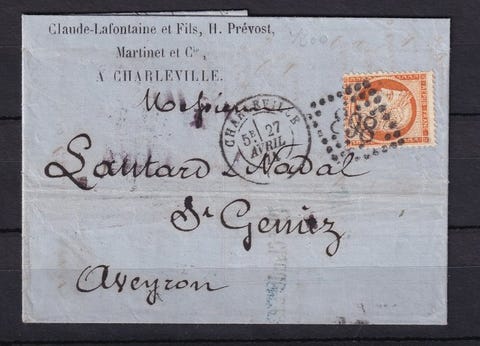 Claude-Lafontaine et Fils, H. Prévost,
Martinet et Cie,
A CHARLEVILLE.
Monsieur
CHARLEVILLE
5E 27
AVRIL
Lautard Nadal
St Geniez
Aveyron